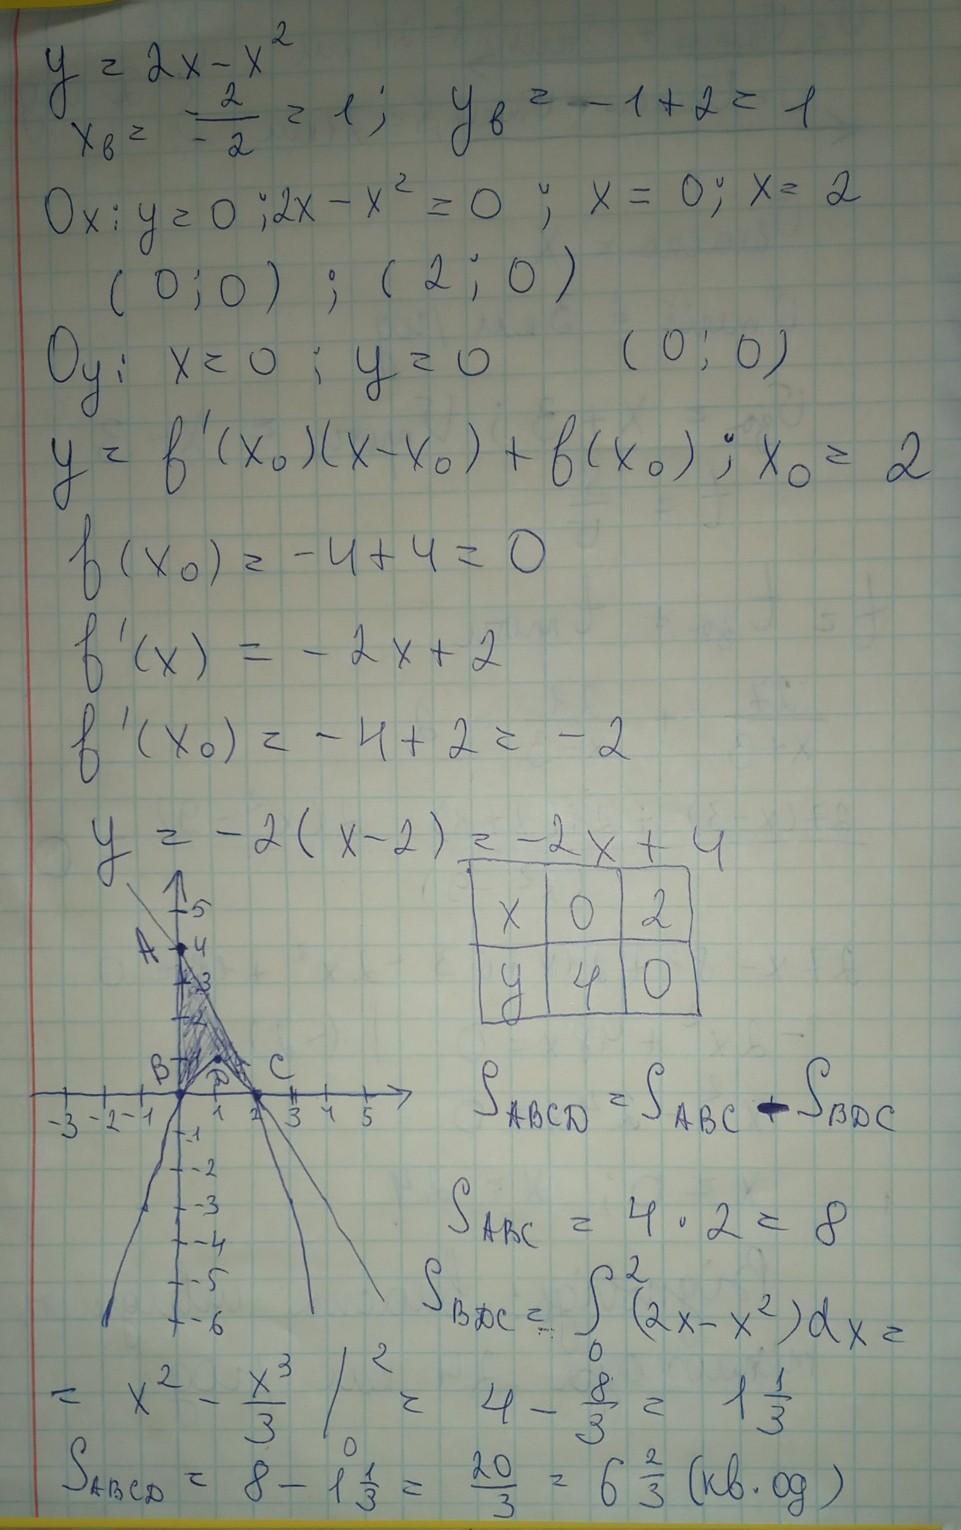 y = 2x - x²
xв = -2/-2 = 1; yв = -1+2 = 1
Ox: y = 0; 2x - x² = 0; x = 0; x = 2
(0; 0); (2; 0)
Oy: x = 0; y = 0 (0; 0)
y = f'(x₀)(x-x₀) + f(x₀); x₀ = 2
f(x₀) = -4+4 = 0
f'(x) = -2x+2
f'(x₀) = -4+2 = -2
y = -2(x-2) = -2x+4
x 0 2
y 4 0
5
A 4
3
2
B 1 D C
-3 -2 -1 1 2 3 4 5
-1
-2
-3
-4
-5
-6
S ABCD = S ABC - S BDC
S ABC = 4 · 2 = 8
S BDC = ∫₀² (2x - x²)dx =
= x² - x³/3 |₀² = 4 - 8/3 = 1 1/3
S ABCD = 8 - 1 1/3 = 20/3 = 6 2/3 (кв. од)